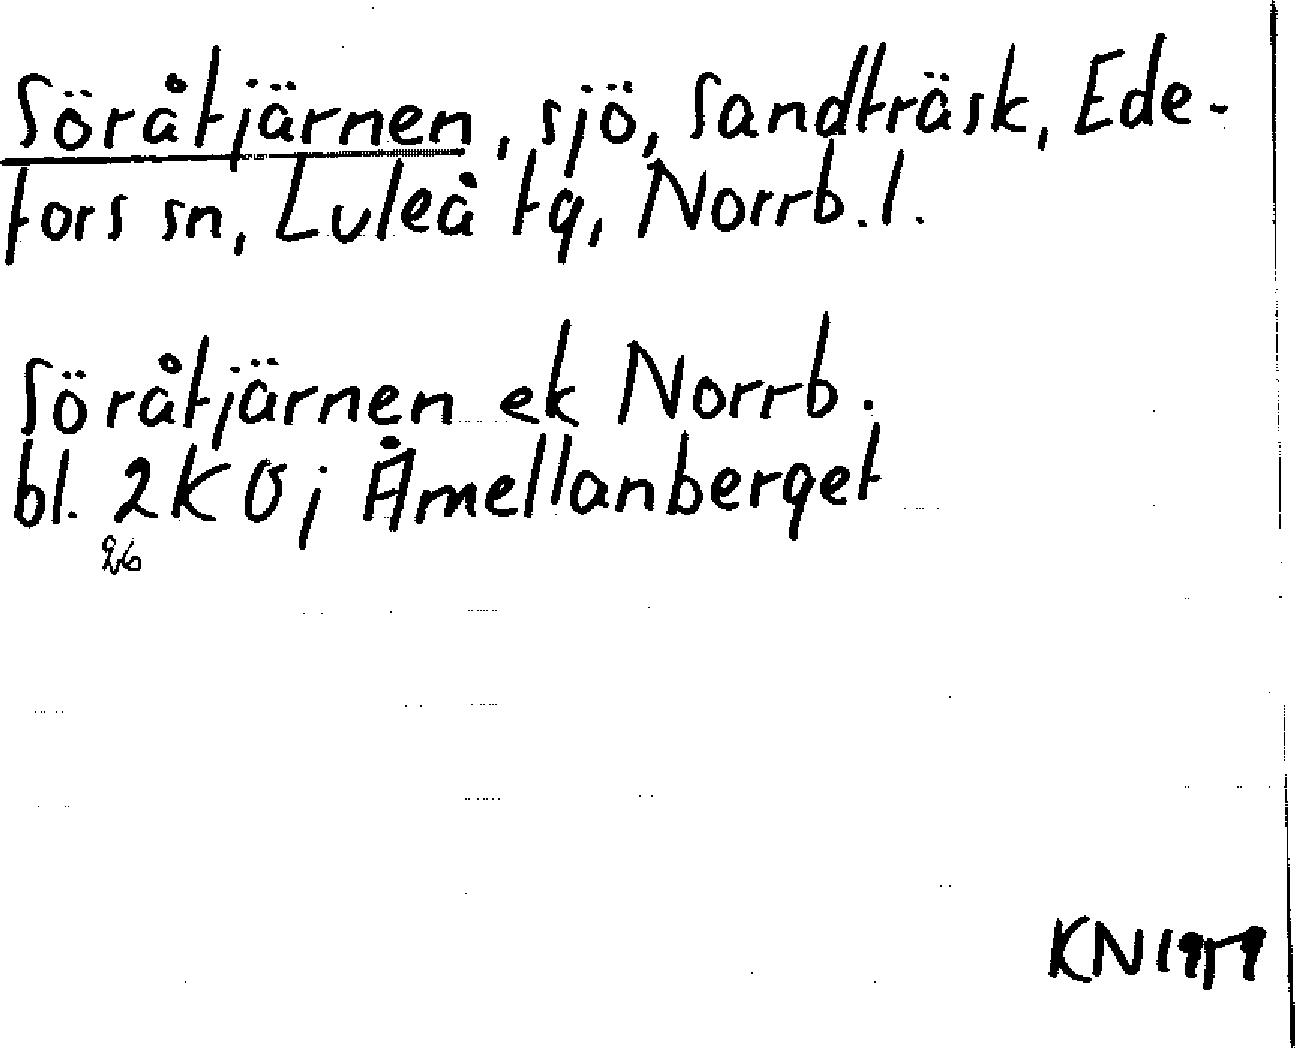 Söråtjärnen, sjö, Sandträsk, Ede-
fors sn, Luleå tg, Norrb. l.
Söråtjärnen ek Norrb.
bl. 26 K O j Åmellanberget
26
KN 1959